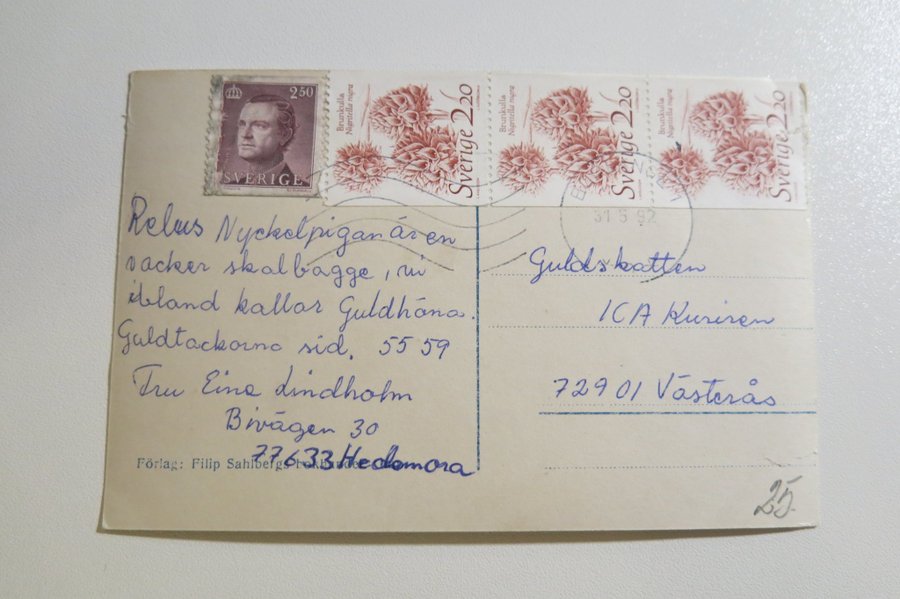 2.50
SVERIGE
Brunkulla
Nigritella nigra
Sverige 2.20
Brunkulla
Nigritella nigra
Sverige 2.20
Brunkulla
Nigritella nigra
Sverige 2.20
31 5 92
Rebus Nyckelpigan är en
vacker skalbagge, vi
ibland kallar Guldhöna.
Guldtackorna sid. 55 59
Fru Eina Lindholm
Bivägen 30
77633 Hedemora
Förlag: Filip Sahlbergs
Guldskatten
ICA Kuriren
72901 Västerås
25.